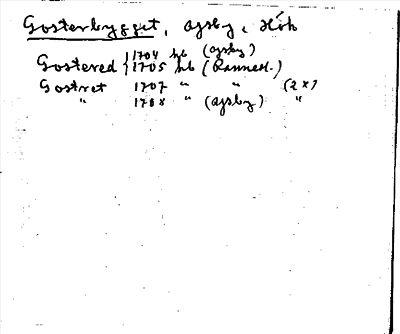 Gosterbygget, Aysby, Hök
Gostered 1704 hb (Aysby)
1705 hb (Rannesl.)
Gostret 1707 " " (2 x)
" 1708 " (Aysby) "